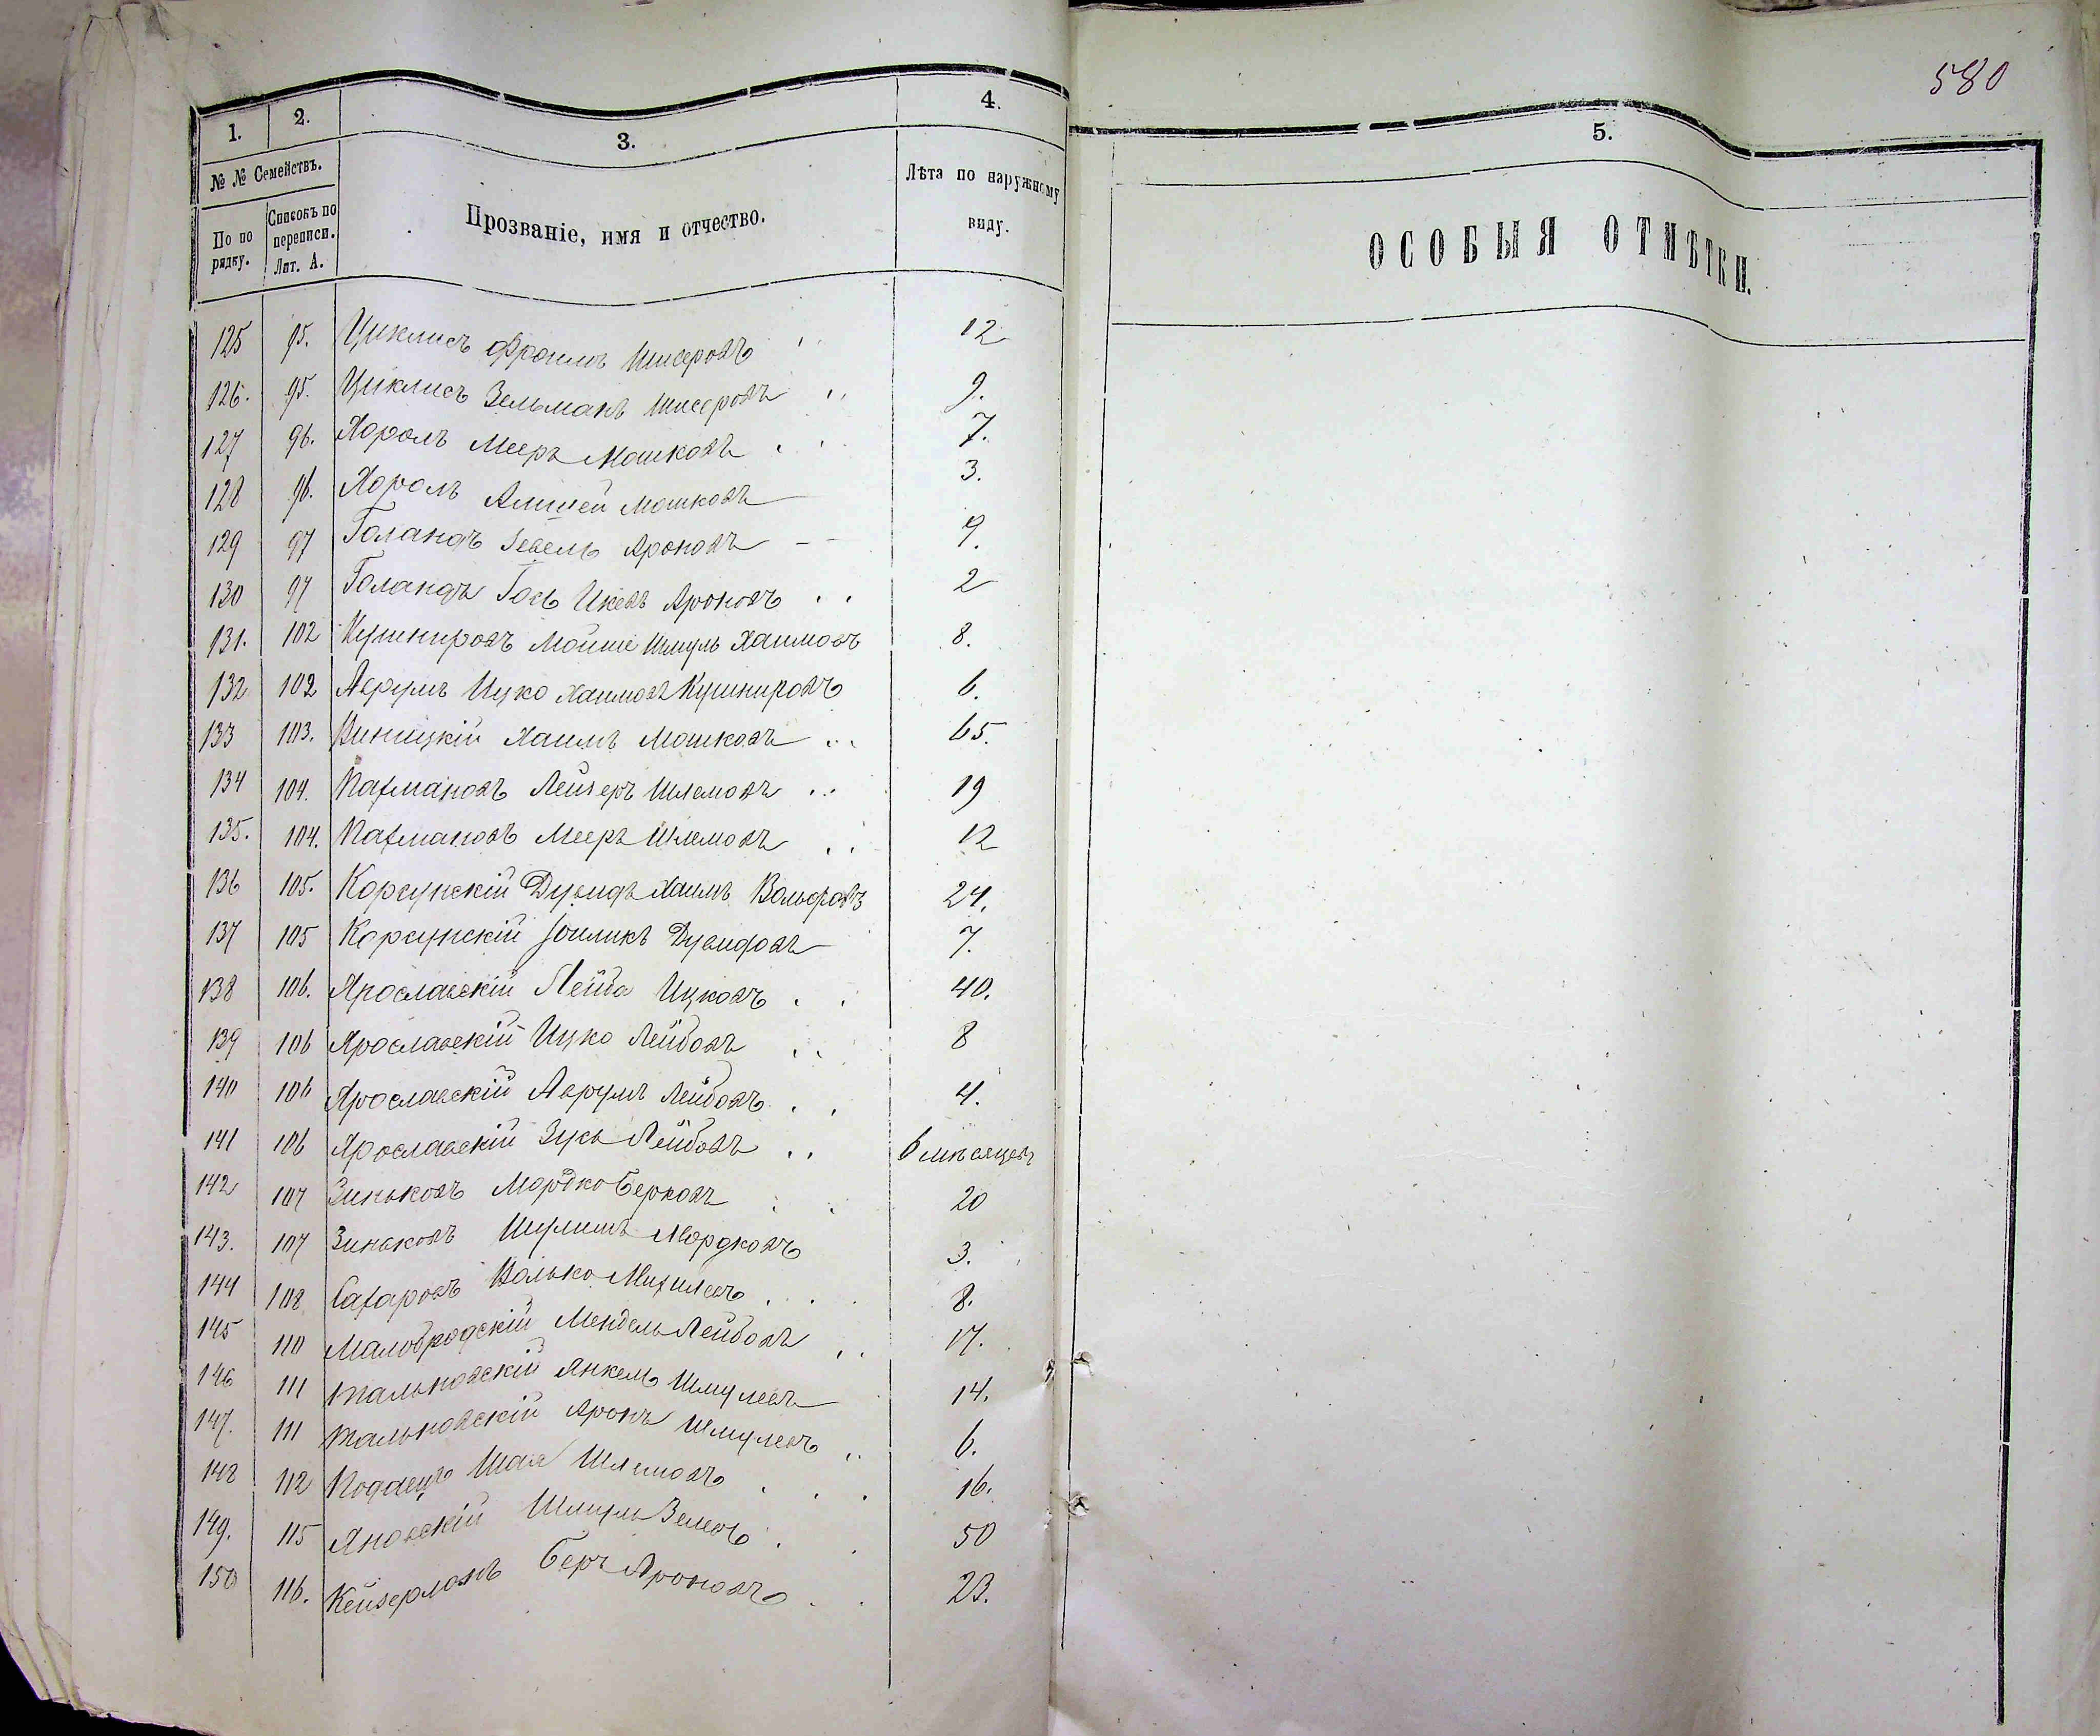 580
1. 2. 3. 4. 5.
№ № Семействъ.
По по рядку.
Списокъ по переписи. Лит. А.
Прозваніе, имя и отчество.
Лѣта по наружному виду.
ОСОБЫЯ ОТМѢТКИ.
125 95. Циклисъ Фроимъ Шисеровъ 12
126. 95. Циклисъ Зельманъ Шисеровъ 9.
127 96. Хороль Мееръ Мошковъ 7.
128 96. Хороль Мошковъ 3.
129 97 Голандъ Ароновъ 9.
130 97 Голандъ Ароновъ 2
131. 102 Кушнировъ Мойше Шмуль Хаимовъ 8.
132 102 Аврумъ Ицко Хаимовъ Кушнировъ 6.
133 103. Виницкій Хаимъ Мошковъ 65.
134 104. Пахмановъ Лейзеръ Шлемовъ 19
135. 104. Пахмановъ Мееръ Шлемовъ 12
136 105. Корсунскій Дувидъ Хаимъ Вольфовъ 24.
137 105 Корсунскій Дувидовъ 7.
138 106. Ярославскій Лейба Ицковъ 40.
139 106 Ярославскій Ицко Лейбовъ 8
140 106 Ярославскій Аврумъ Лейбовъ 4.
141 106 Ярославскій Зусь Лейбовъ 6 мѣсяцевъ
142 107 Зиньковъ Мордко Берковъ 20
143. 107 Зиньковъ Шулимъ Мордковъ 3.
144 108 Сахаровъ Волько Михилевъ 8.
145 110 Малобродскій Мендель Лейбовъ 17.
146 111 Тальновскій Янкель Шмулевъ 14.
147. 111 Тальновскій Аронъ Шмулевъ 6.
148 112 Шая Шлемовъ 16.
149. 115 Яновскій Шмуль 50
150 116. Кейзерманъ Беръ Ароновъ 23.